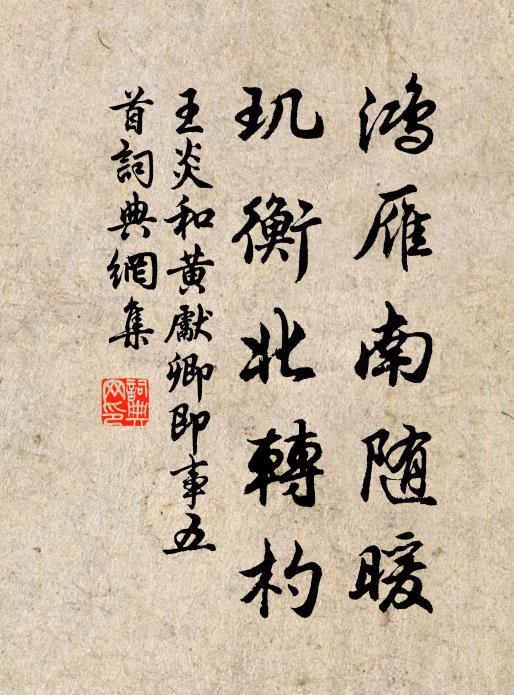 鴻雁南随暖
玑衡北轉杓
王炎和黃獻卿即事五
首詞典網集
詞典
网印